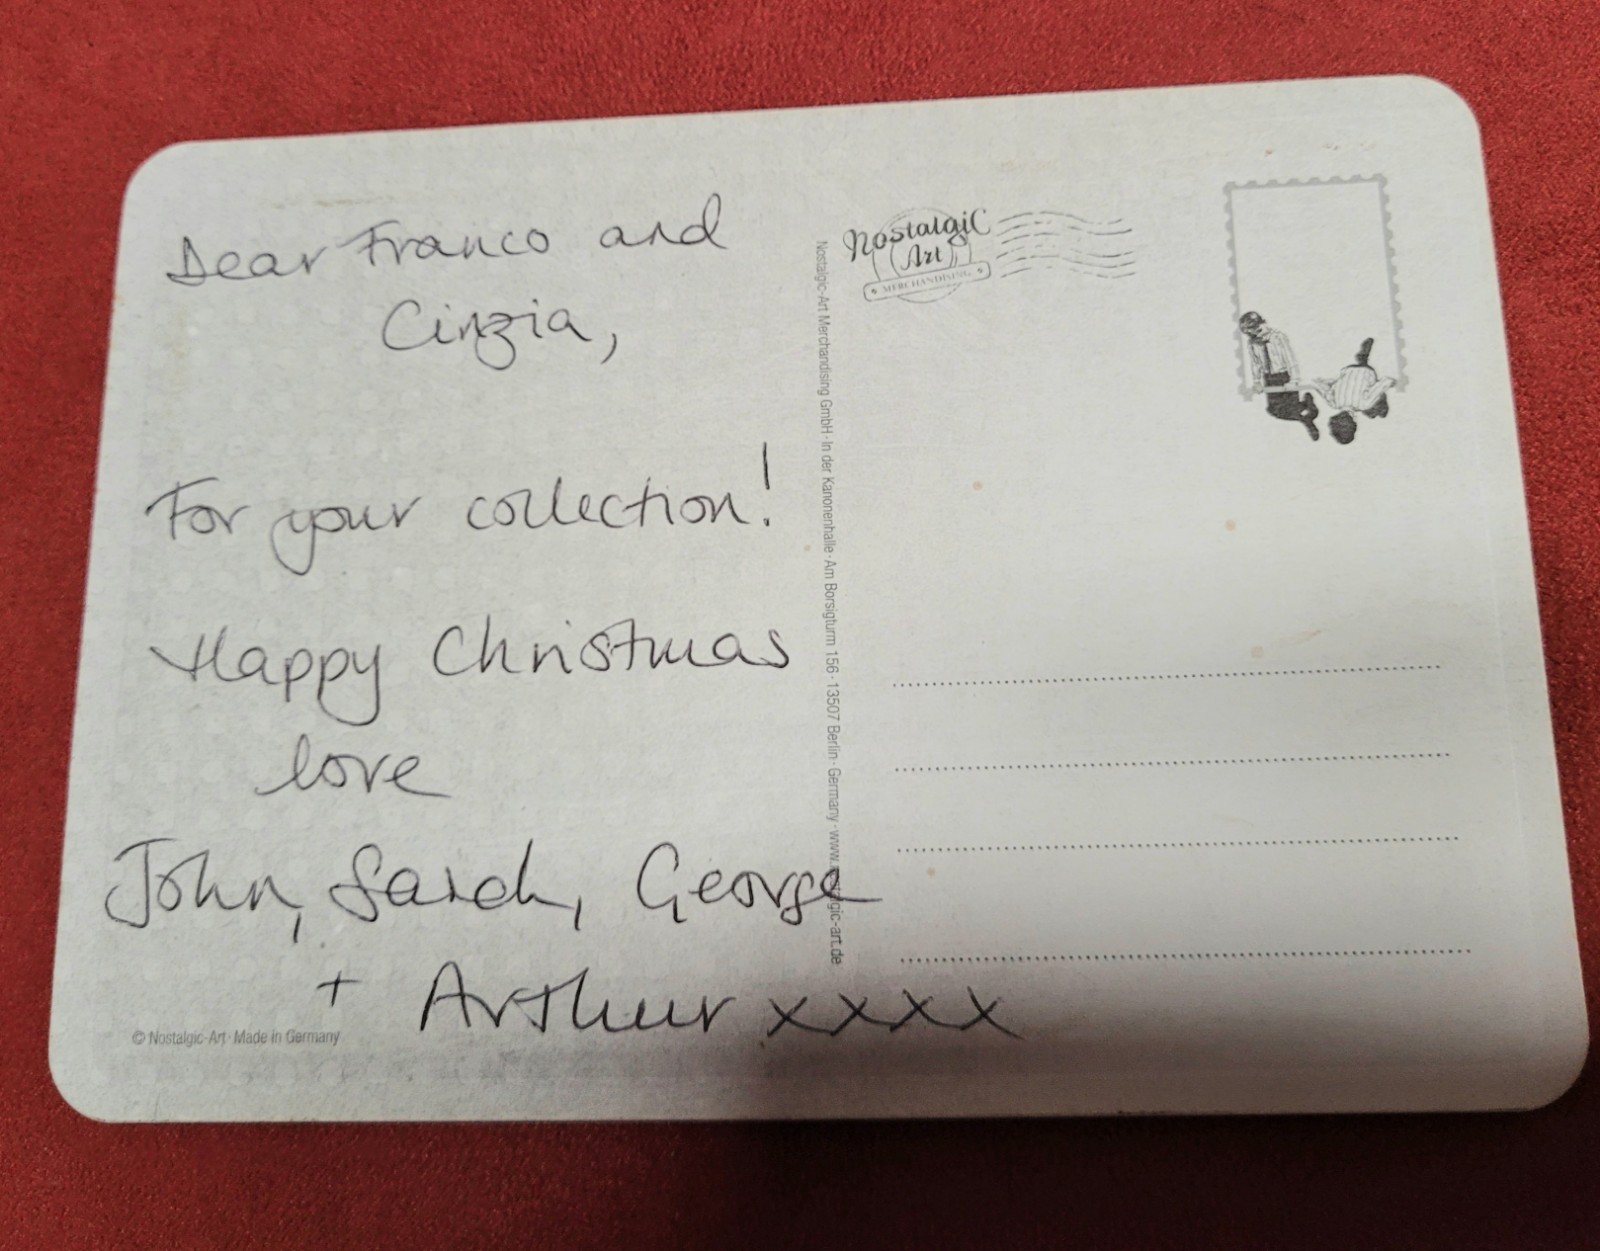 Dear Franco and
Cinzia,
For your collection!
Happy Christmas
love
John, Sarah, George
+ Arthur xxxx
© Nostalgic-Art · Made in Germany
Nostalgic-Art Merchandising GmbH · In der Kanonenhalle · Am Borsigturm 156 · 13507 Berlin · Germany · www.nostalgic-art.de
Nostalgic
Art
MERCHANDISING